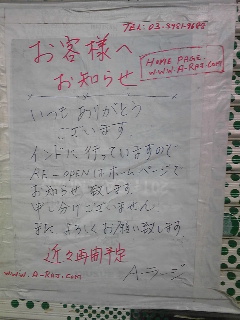 TEL: 03-3981-9688
お客様へ
お知らせ
HOME PAGE
www.A-Raj.com
いつも ありがとう
ございます
インドに行っていますので
RE-OPENはホームページで
お知らせ致します.
申し分けございません
また よろしくお願い致します.
近々再開予定
www.A-Raj.com
A.ラージ